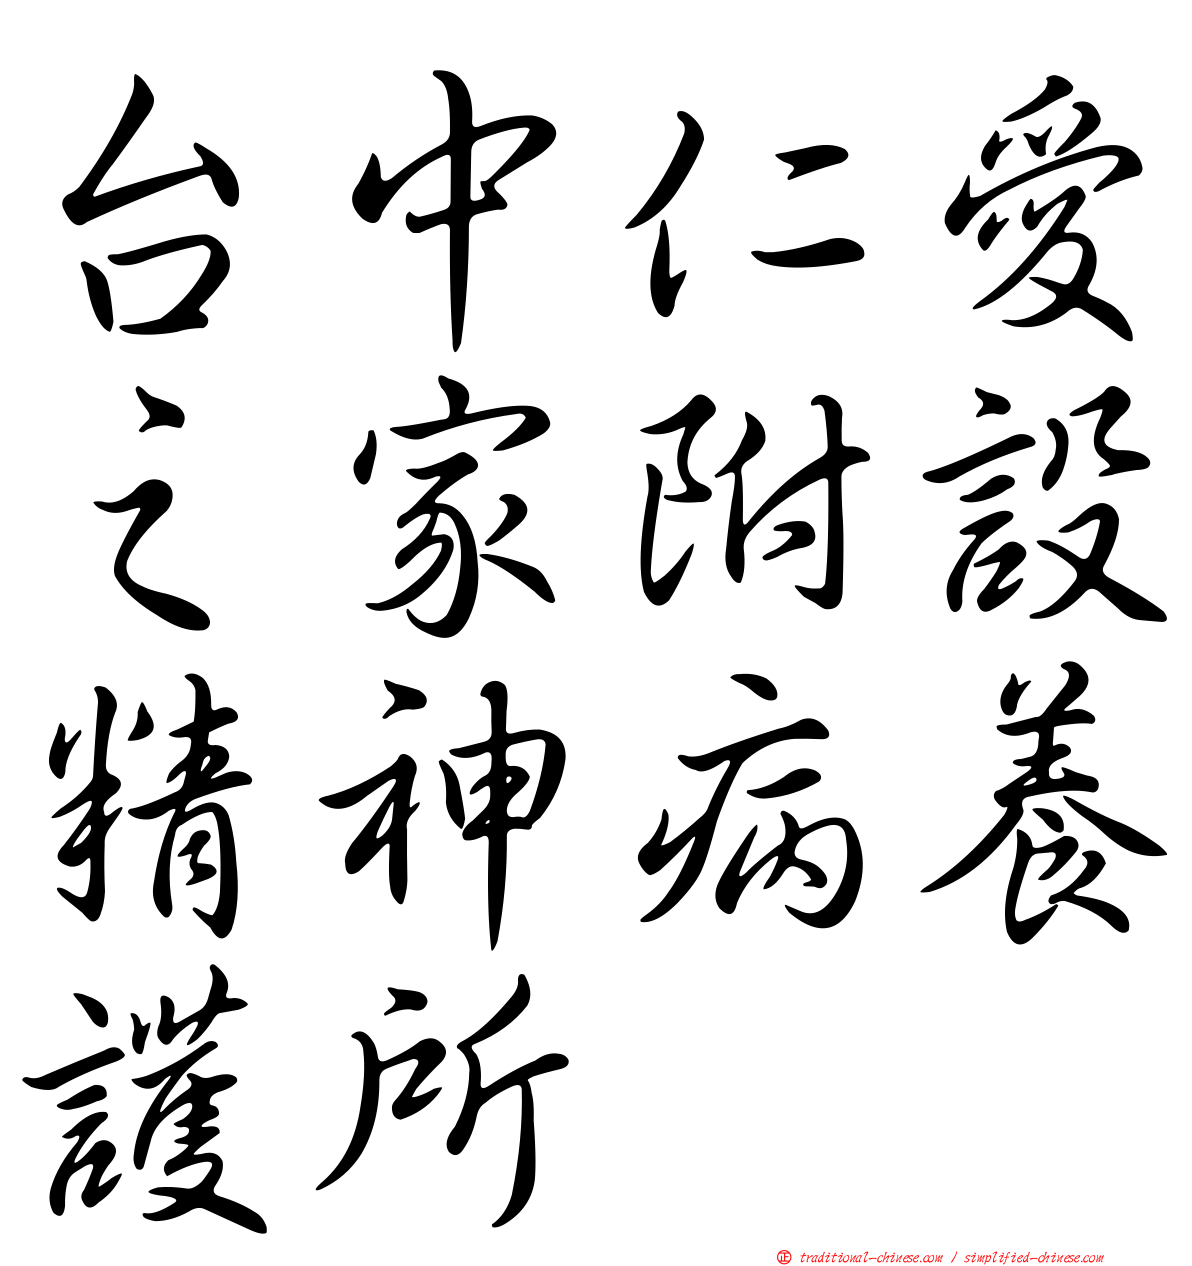 台中仁愛
之家附設
精神病養
護所
㊣ traditional-chinese.com / simplified-chinese.com